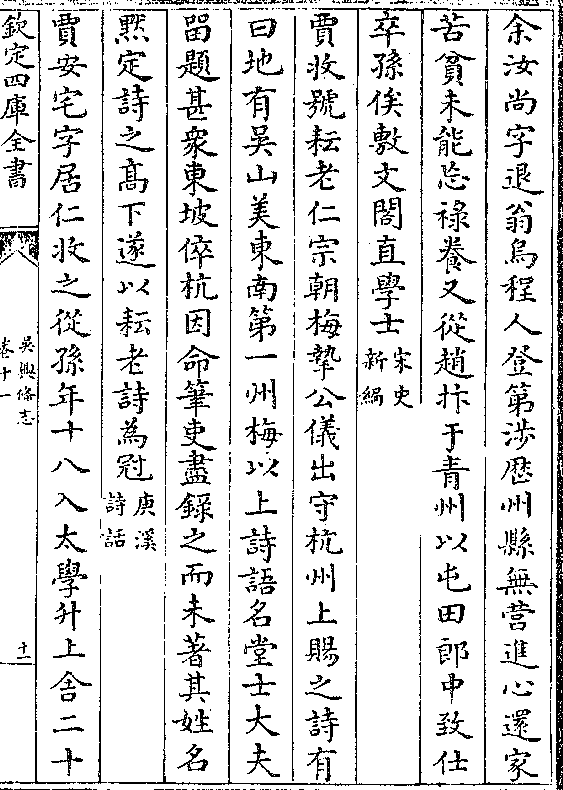 余汝尚字退翁烏程人登第涉歴州縣無營進心還家
苦貧未能忘禄養又從趙抃于青州以屯田郎中致仕
卒孫俟敷文閣直學士宋史新編
賈收號耘老仁宗朝梅摯公儀出守杭州上賜之詩有
曰地有吳山美東南第一州梅以上詩語名堂士大夫
留題甚衆東坡倅杭因命筆吏盡錄之而未著其姓名
㸃定詩之髙下遂以耘老詩為冠庚溪詩話
賈安宅字居仁收之從孫年十八入太學升上舍二十
欽定四庫全書
吳興備志
卷十一
十一